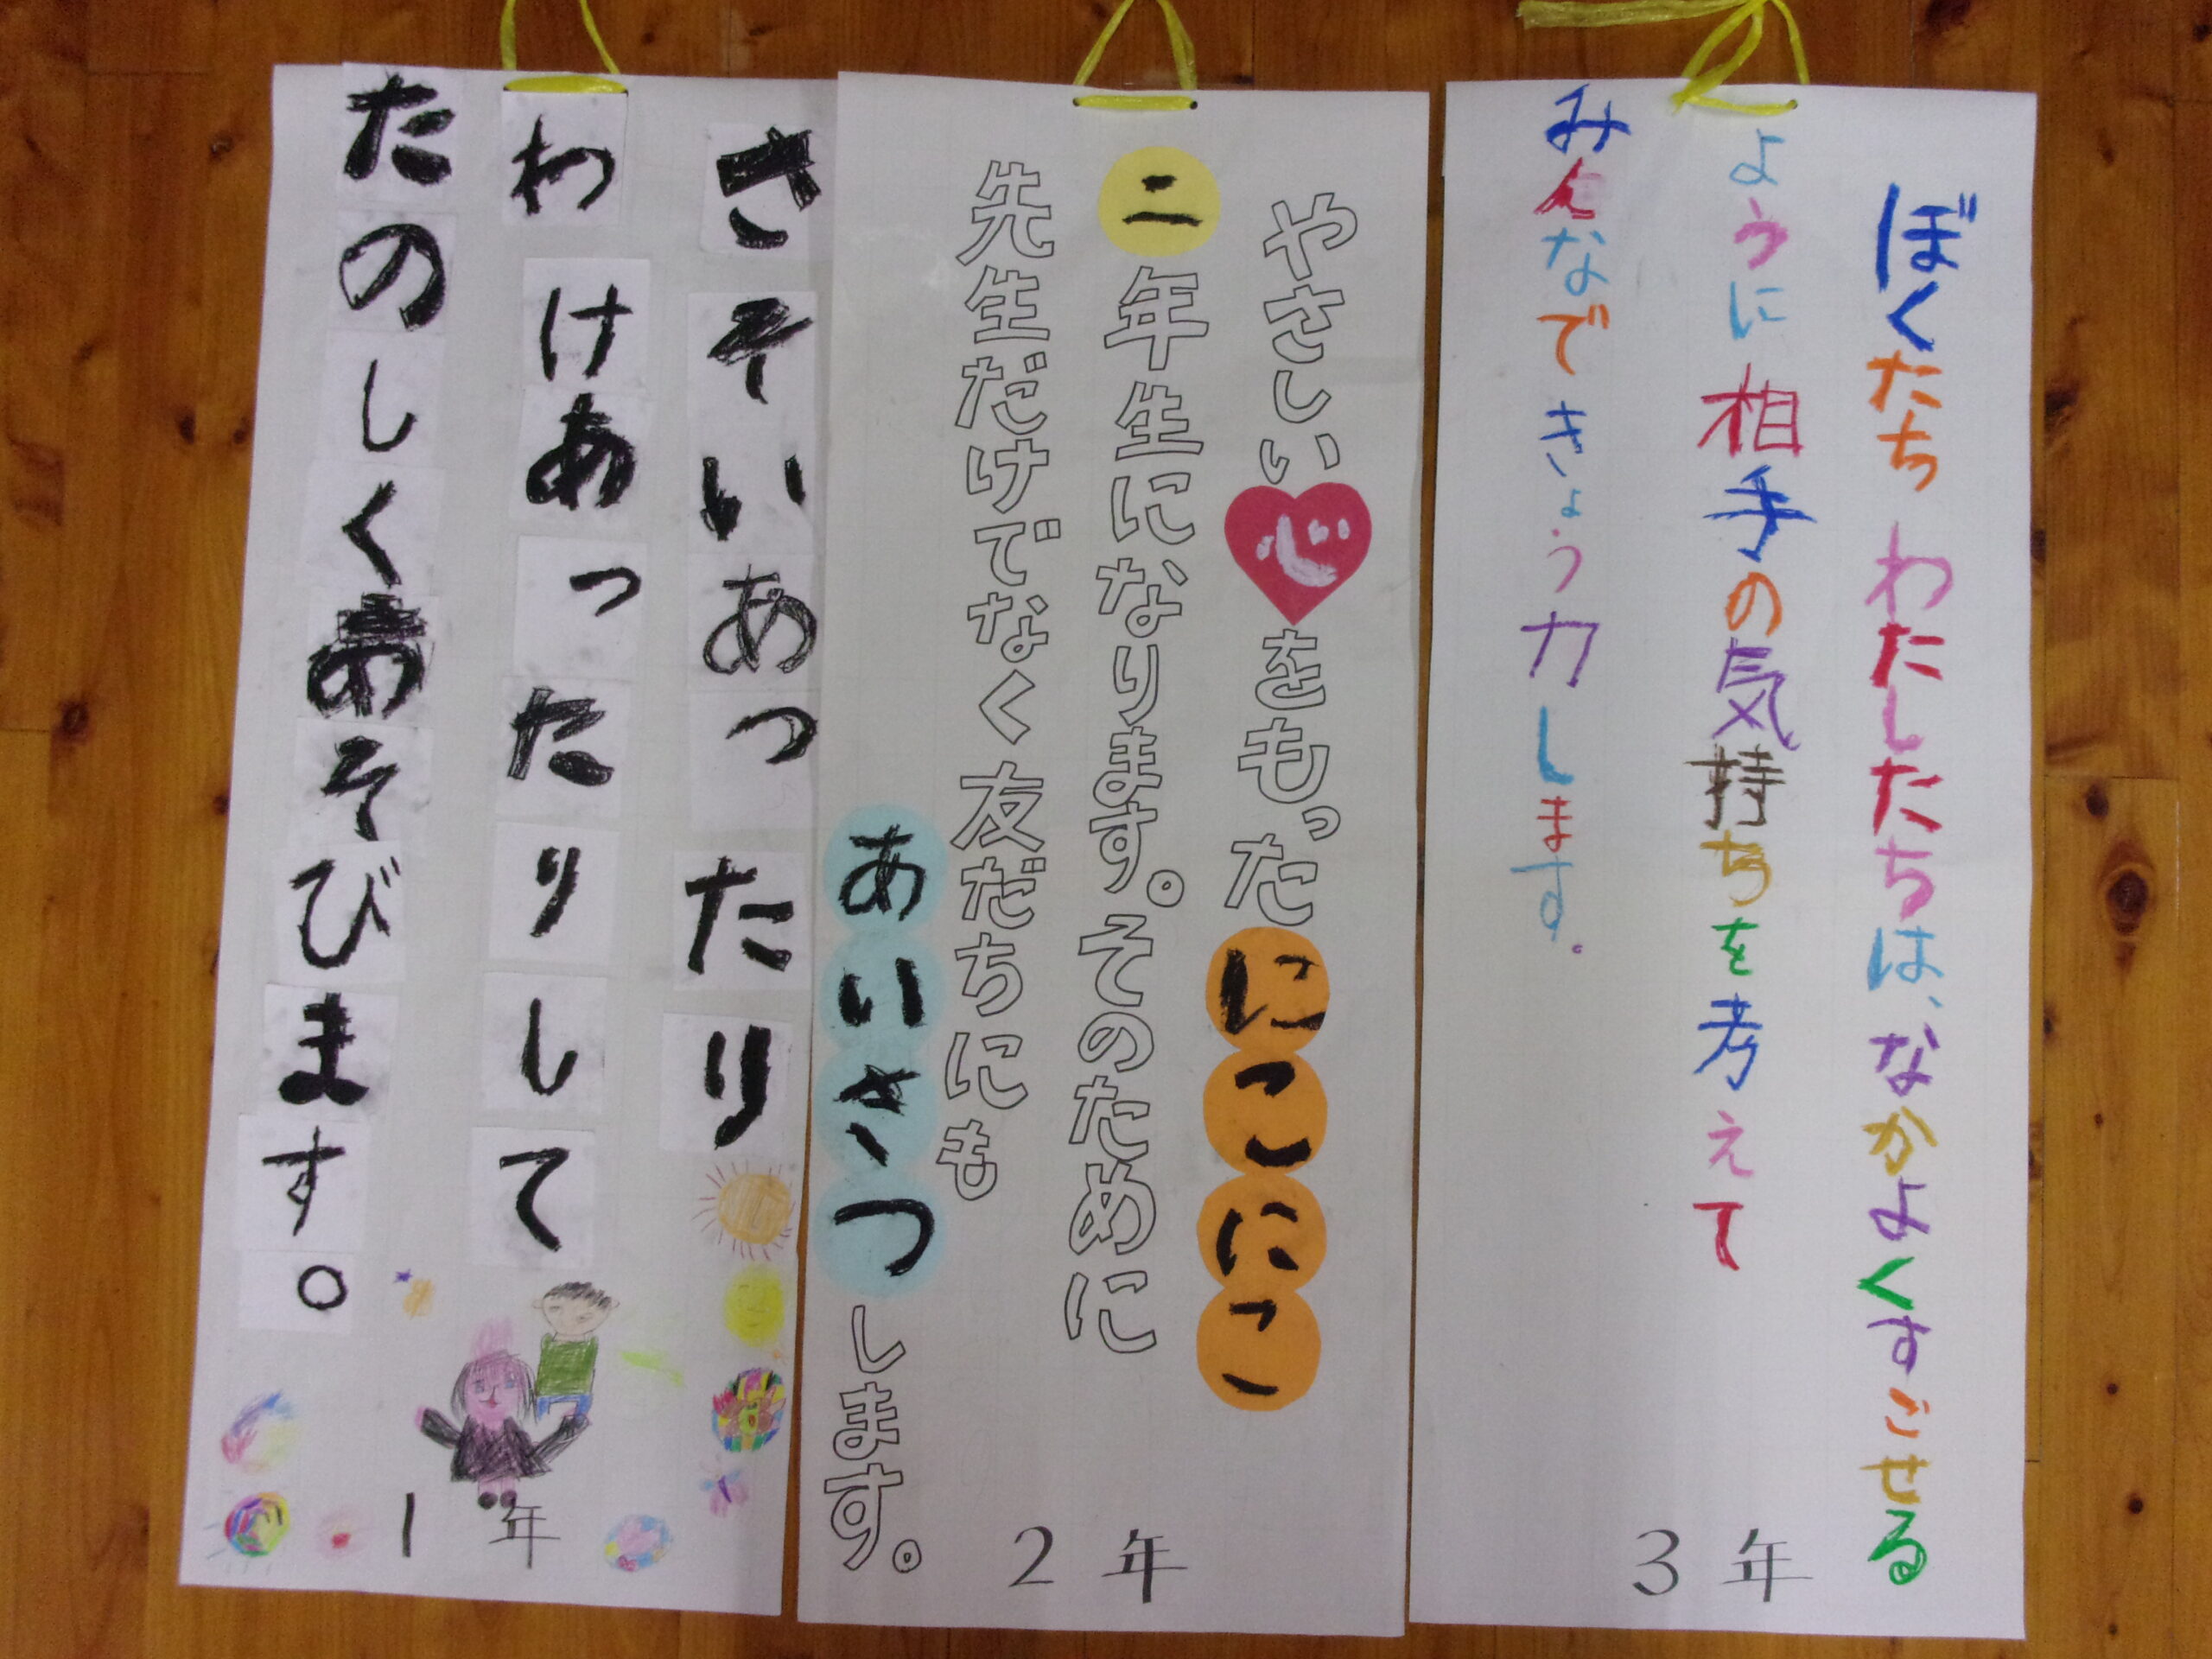 さそいあったり
わけあったりして
たのしくあそびます。
1年
やさしい心をもったにこにこ
二年生になります。そのために
先生だけでなく友だちにも
あいさつします。
2年
ぼくたちわたしたちは、なかよくすごせる
ように相手の気持ちを考えて
みんなできょう力します。
3年